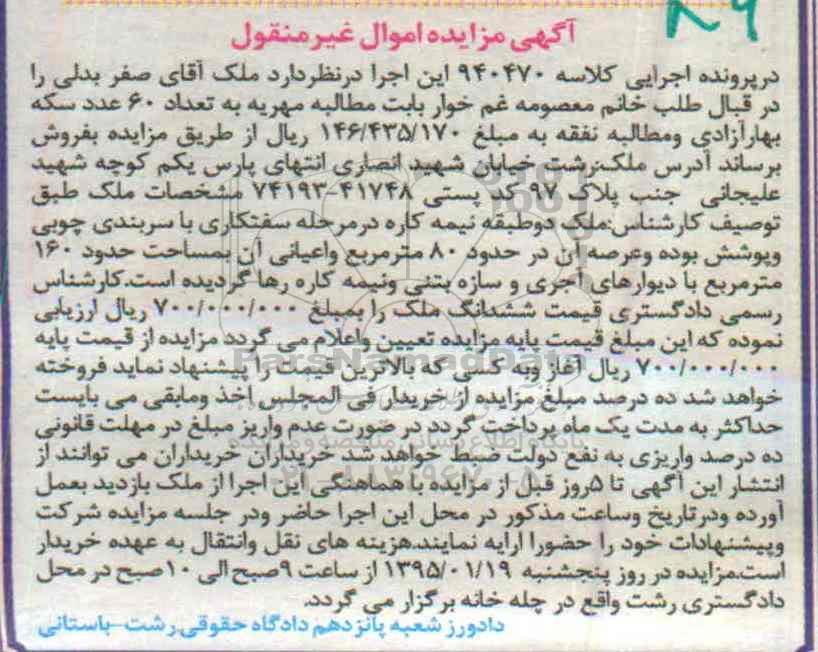 ۸۹
آگهی مزایده اموال غیر منقول
درپرونده اجرایی کلاسه ۹۴۰۴۷۰ این اجرا درنظردارد ملک آقای صفر بدلی را
در قبال طلب خانم معصومه غم خوار بابت مطالبه مهریه به تعداد ۶۰ عدد سکه
بهارآزادی ومطالبه نفقه به مبلغ ۱۴۶/۴۳۵/۱۷۰ ریال از طریق مزایده بفروش
برساند آدرس ملک:رشت خیابان شهید انصاری انتهای پارس یکم کوچه شهید
علیجانی جنب پلاک ۹۷ کد پستی ۴۱۷۴۸-۷۴۱۹۳ مشخصات ملک طبق
توصیف کارشناس:ملک دوطبقه نیمه کاره درمرحله سفتکاری با سربندی چوبی
وپوشش بوده وعرصه آن در حدود ۸۰ مترمربع واعیانی آن بمساحت حدود ۱۶۰
مترمربع با دیوارهای آجری و سازه بتنی ونیمه کاره رها گردیده است.کارشناس
رسمی دادگستری قیمت ششدانگ ملک را بمبلغ ۷۰۰/۰۰۰/۰۰۰ ریال ارزیابی
نموده که این مبلغ قیمت پایه مزایده تعیین واعلام می گردد مزایده از قیمت پایه
۷۰۰/۰۰۰/۰۰۰ ریال آغاز وبه کسی که بالاترین قیمت را پیشنهاد نماید فروخته
خواهد شد ده درصد مبلغ مزایده از خریدار فی المجلس اخذ ومابقی می بایست
حداکثر به مدت یک ماه پرداخت گردد در صورت عدم واریز مبلغ در مهلت قانونی
ده درصد واریزی به نفع دولت ضبط خواهد شد خریداران خریداران می توانند از
انتشار این آگهی تا ۵روز قبل از مزایده با هماهنگی این اجرا از ملک بازدید بعمل
آورده ودرتاریخ وساعت مذکور در محل این اجرا حاضر ودر جلسه مزایده شرکت
وپیشنهادات خود را حضورا ارایه نمایند.هزینه های نقل وانتقال به عهده خریدار
است.مزایده در روز پنجشنبه ۱۳۹۵/۰۱/۱۹ از ساعت ۹صبح الی ۱۰صبح در محل
دادگستری رشت واقع در چله خانه برگزار می گردد.
دادورز شعبه پانزدهم دادگاه حقوقی رشت-باستانی
ParsNamadData